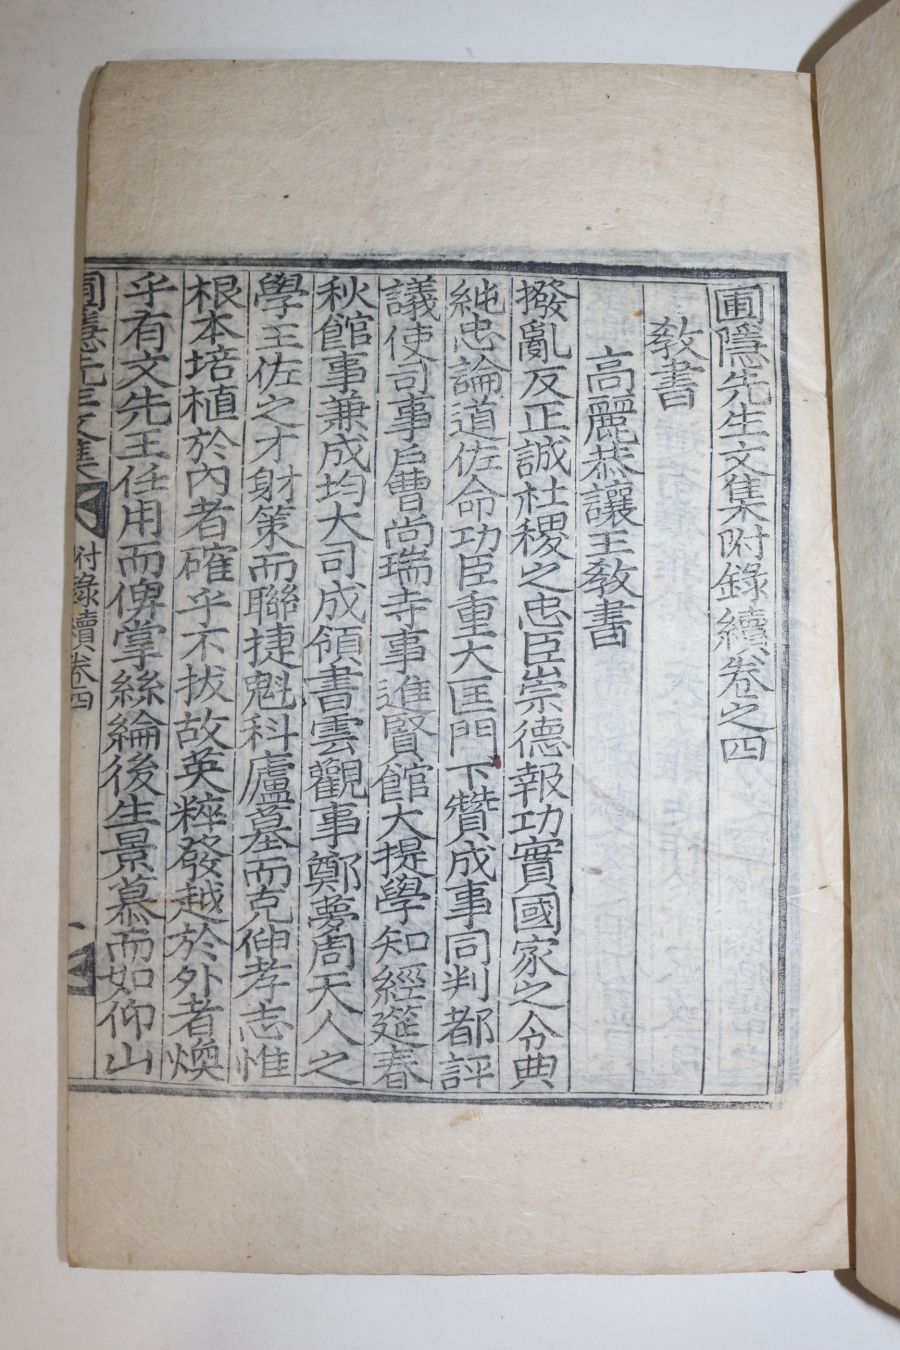 圃隱先生文集附錄續卷之四
敎書
高麗恭讓王敎書
撥亂反正誠社稷之忠臣崇德報功實國家之令典
純忠論道佐命功臣重大匡門下贊成事同判都評
議使司事戶曹尚瑞寺事進賢館大提學知經筵春
秋館事兼成均大司成領書雲觀事鄭夢周天人之
學王佐之才射策而聯捷魁科廬墓而克伸孝志惟
根本培植於內者確乎不拔故英粹發越於外者煥
乎有文先王任用而俾掌絲綸後生景慕而如仰山
圃隱先生文集 附錄續卷四